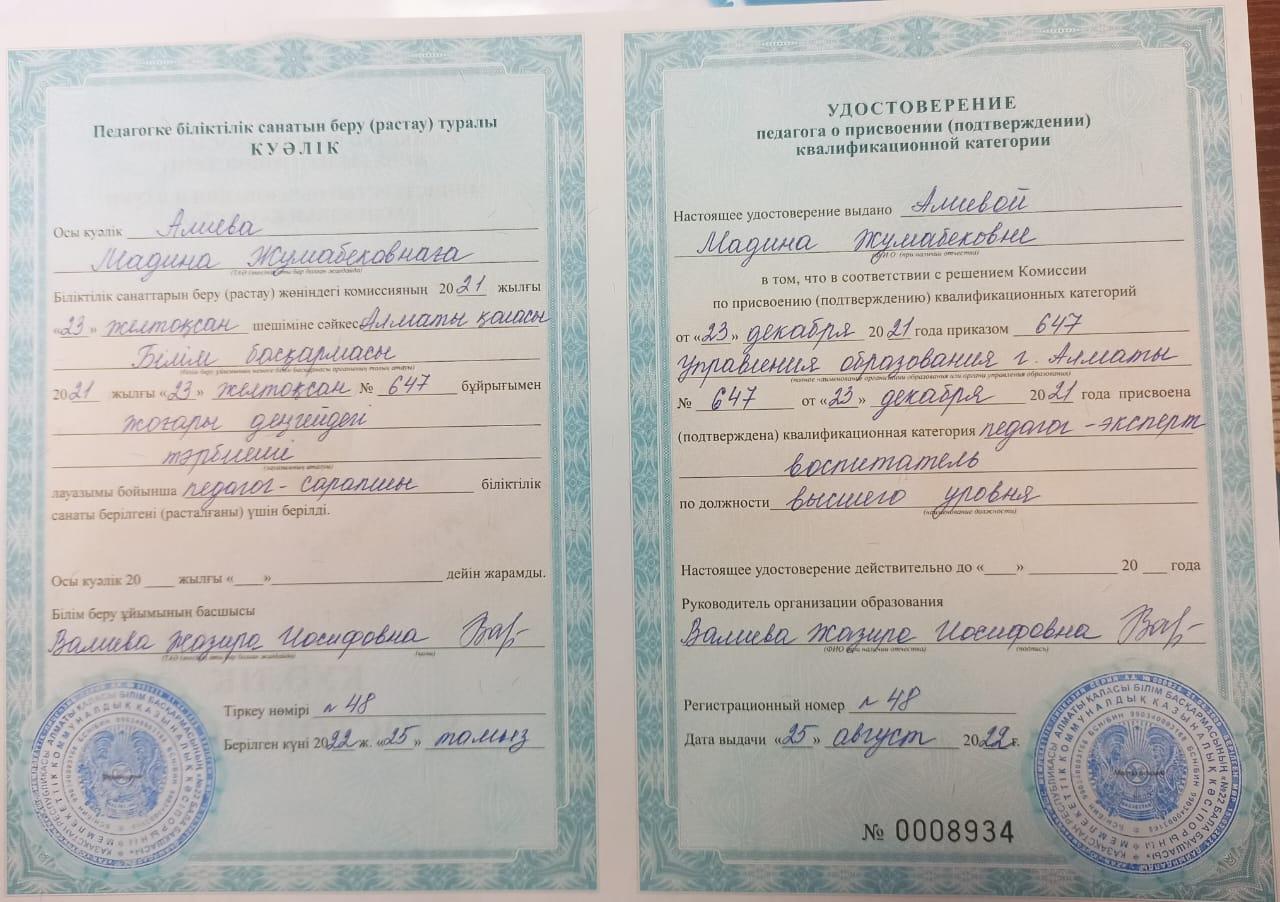 Педагогке біліктілік санатын беру (растау) туралы
КУӘЛІК
Осы куәлік Алиева
Мадина Жумабековнаға
(ТАӘ (әкесінің аты бар болған жағдайда)
Біліктілік санаттарын беру (растау) жөніндегі комиссияның 2021 жылғы
«23» желтоқсан шешіміне сәйкес Алматы қаласы
Білім басқармасы
2021 жылғы «23» желтоқсан № 647 бұйрығымен
жоғары деңгейден
тәрбиеші
(лауазымның атауы)
лауазымы бойынша педагог-сарапшы біліктілік
санаты берілгені (расталғаны) үшін берілді.
Осы куәлік 20 ___ жылғы «___» ___ дейін жарамды.
Білім беру ұйымының басшысы
Валиева Жазира Иосифовна
Тіркеу нөмірі №48
Берілген күні 2022 ж. «25» тамыз
УДОСТОВЕРЕНИЕ
педагога о присвоении (подтверждении)
квалификационной категории
Настоящее удостоверение выдано Алиевой
Мадина Жумабековне
(ФИО (при наличии отчества)
в том, что в соответствии с решением Комиссии
по присвоению (подтверждению) квалификационных категорий
от «23» декабря 2021 года приказом 647
Управления образования г. Алматы
(полное наименование организации образования или органа управления образования)
№ 647 от «23» декабря 2021 года присвоена
(подтверждена) квалификационная категория педагог-эксперт
воспитатель
по должности высшего уровня
(наименование должности)
Настоящее удостоверение действительно до «___» ___ 20 ___ года
Руководитель организации образования
Валиева Жазира Иосифовна
(ФИО (при наличии отчества) (подпись)
Регистрационный номер №48
Дата выдачи «25» август 2022 г.
№ 0008934